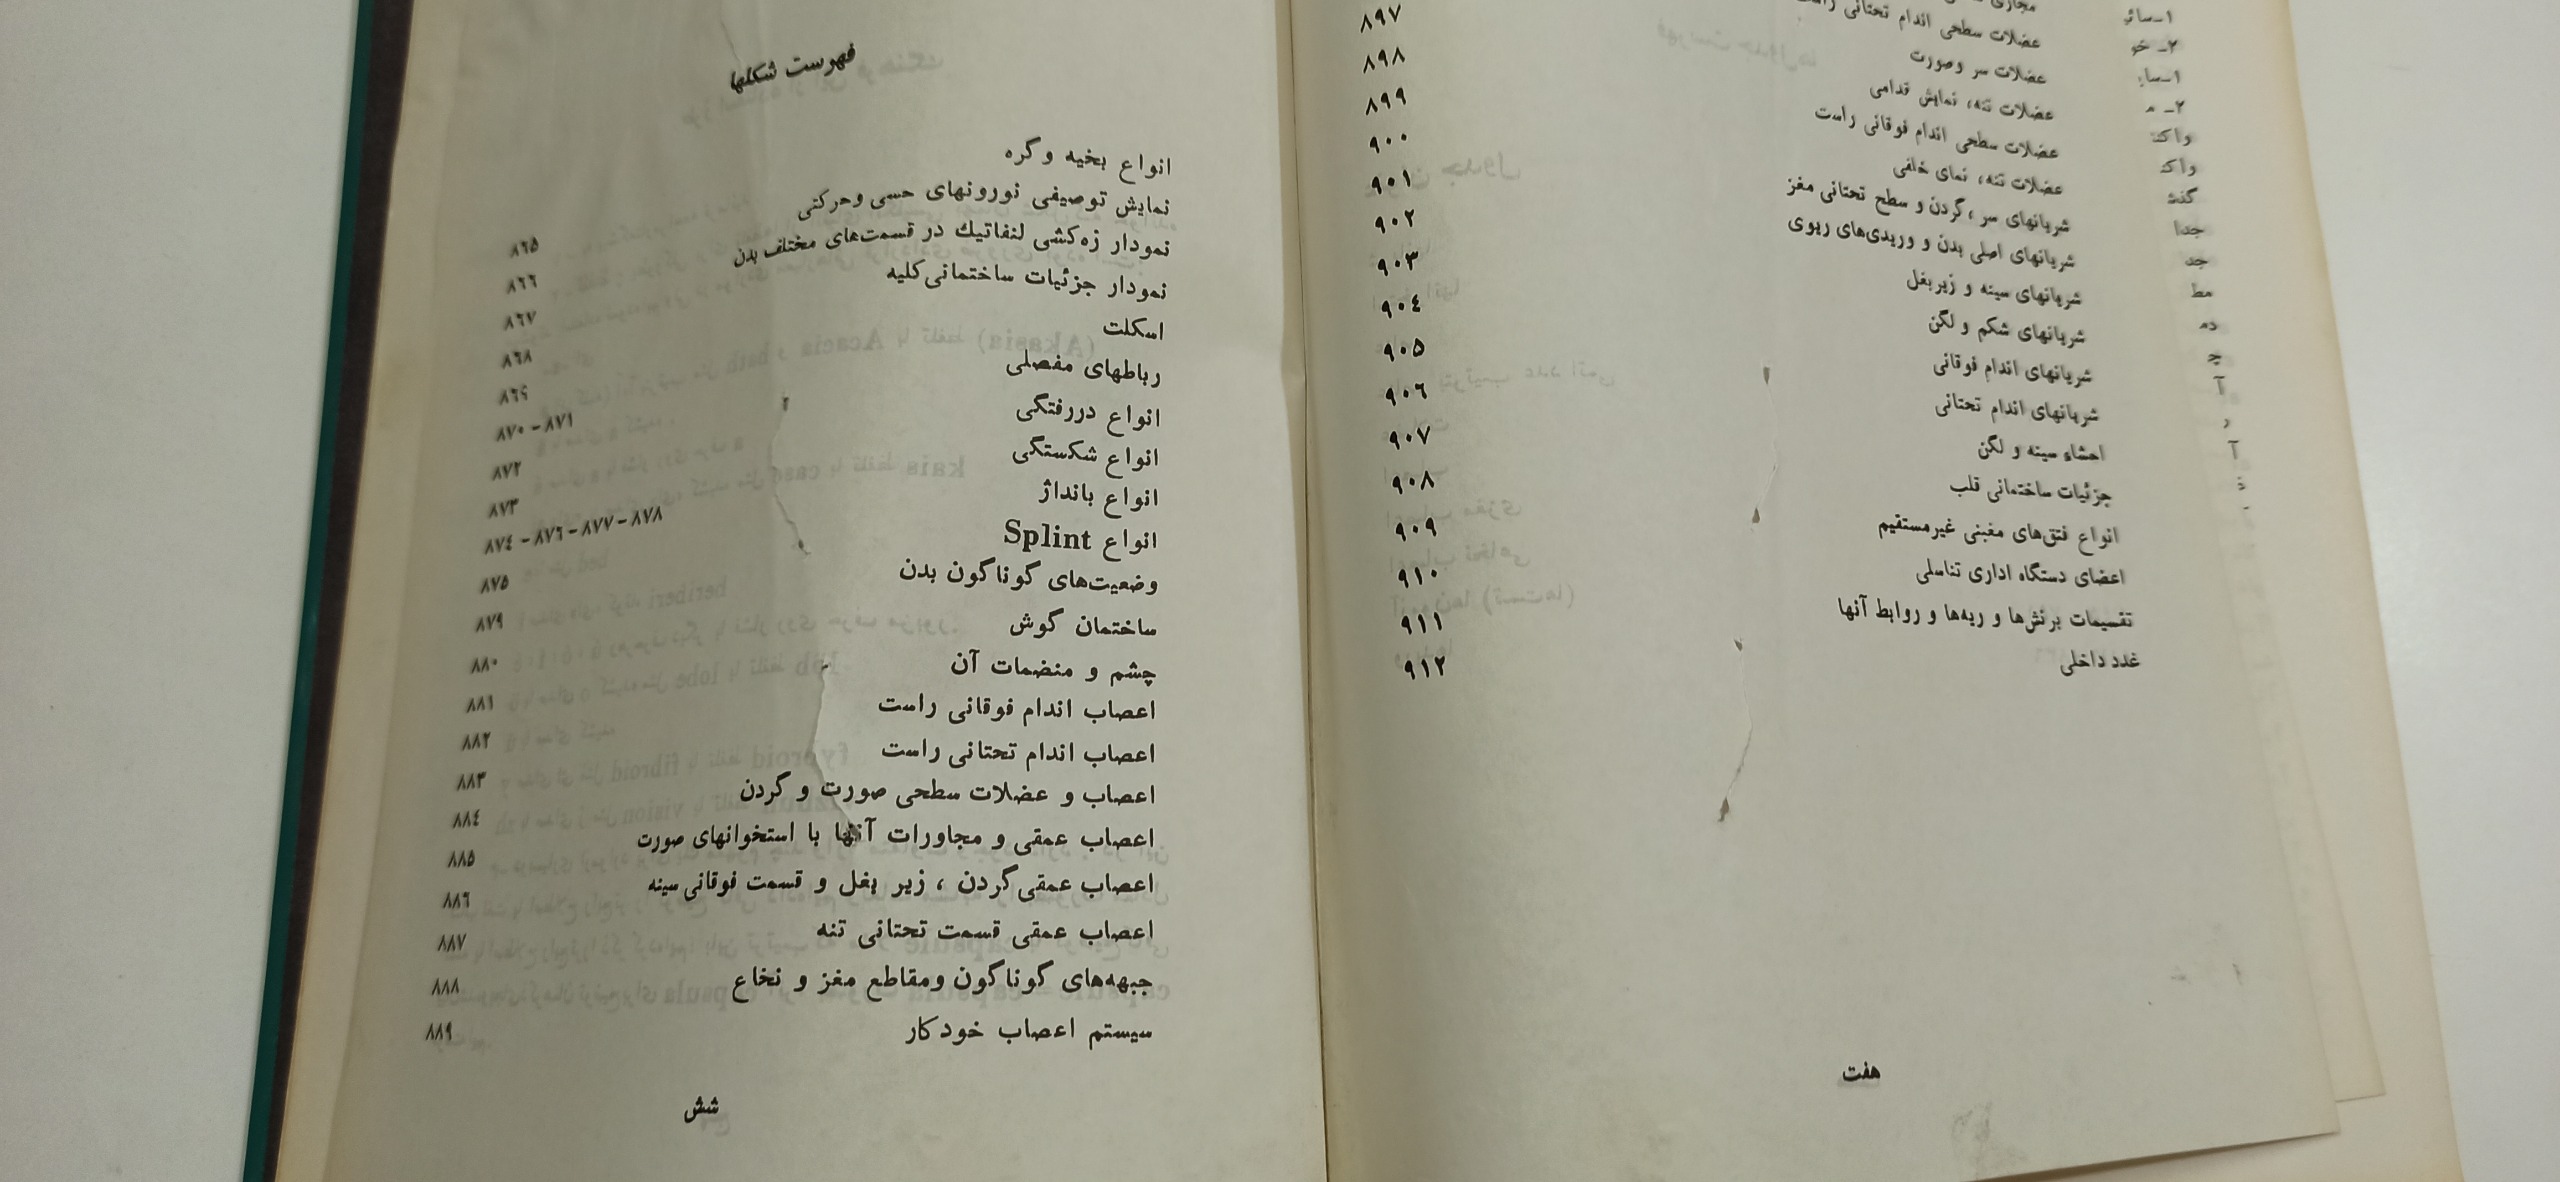 فهرست شکلها
انواع بخیه و گره ۸۶۵
نمایش توصیفی نورونهای حسی وحرکتی ۸۶۶
نمودار زه‌کشی لنفاتیك در قسمت‌های مختلف بدن ۸۶۷
نمودار جزئیات ساختمانی کلیه ۸۶۸
اسکلت ۸۶۹
رباطهای مفصلی ۸۷۰-۸۷۱
انواع دررفتگی ۸۷۲
انواع شکستگی ۸۷۳
انواع بانداژ ۸۷۴-۸۷۶-۸۷۷-۸۷۸
انواع Splint ۸۷۵
وضعیت‌های گوناگون بدن ۸۷۹
ساختمان گوش ۸۸۰
چشم و منضمات آن ۸۸۱
اعصاب اندام فوقانی راست ۸۸۲
اعصاب اندام تحتانی راست ۸۸۳
اعصاب و عضلات سطحی صورت و گردن ۸۸۴
اعصاب عمقی و مجاورات آنها با استخوانهای صورت ۸۸۵
اعصاب عمقی گردن ، زیر بغل و قسمت فوقانی سینه ۸۸۶
اعصاب عمقی قسمت تحتانی تنه ۸۸۷
جبهه‌های گوناگون ومقاطع مغز و نخاع ۸۸۸
سیستم اعصاب خودکار ۸۸۹
شش
مجاری
عضلات سطحی اندام تحتانی راست
عضلات سر وصورت ۸۹۷
عضلات تنه، نمایش قدامی ۸۹۸
عضلات سطحی اندام فوقانی راست ۸۹۹
عضلات تنه، نمای خلفی ۹۰۰
شریانهای سر ،گردن و سطح تحتانی مغز ۹۰۱
شریانهای اصلی بدن و وریدی‌های ریوی ۹۰۲
شریانهای سینه و زیربغل ۹۰۳
شریانهای شکم و لگن ۹۰۴
شریانهای اندام فوقانی ۹۰۵
شریانهای اندام تحتانی ۹۰۶
احشاء سینه و لگن ۹۰۷
جزئیات ساختمانی قلب ۹۰۸
انواع فتق‌های مغبنی غیرمستقیم ۹۰۹
اعضای دستگاه اداری تناسلی ۹۱۰
تقسیمات برنش‌ها و ریه‌ها و روابط آنها ۹۱۱
غدد داخلی ۹۱۲
هفت